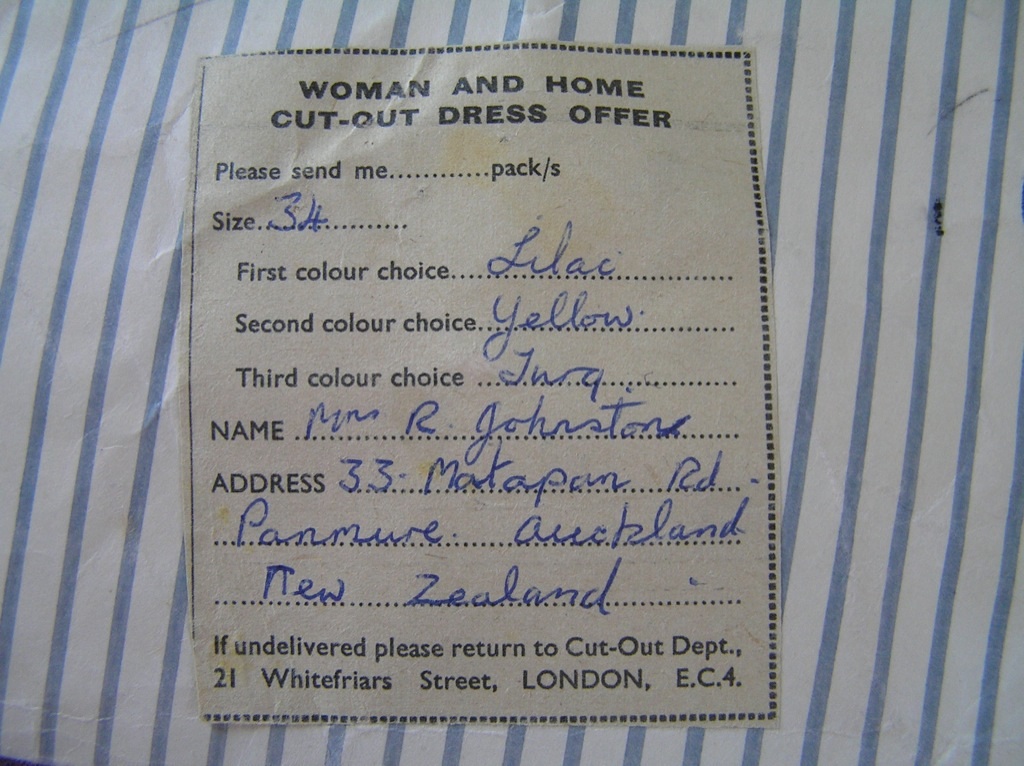 WOMAN AND HOME
CUT-OUT DRESS OFFER
Please send me............pack/s
Size..34............
First colour choice....Lilac................
Second colour choice..Yellow................
Third colour choice ...Turq................
NAME Mrs R. Johnstone
ADDRESS 33 Matapan Rd
Panmure. Auckland
New Zealand
If undelivered please return to Cut-Out Dept.,
21 Whitefriars Street, LONDON, E.C.4.